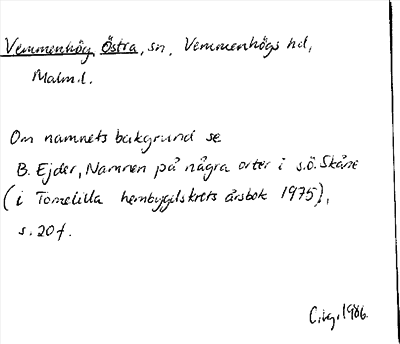 Vemmenhög, Östra, sn, Vemmenhögs hd,
Malm.l.
Om namnets bakgrund se
B. Ejder, Namnen på några orter i s.ö. Skåne
(i Tomelilla hembygdskrets årsbok 1975),
s. 20 f.
1986